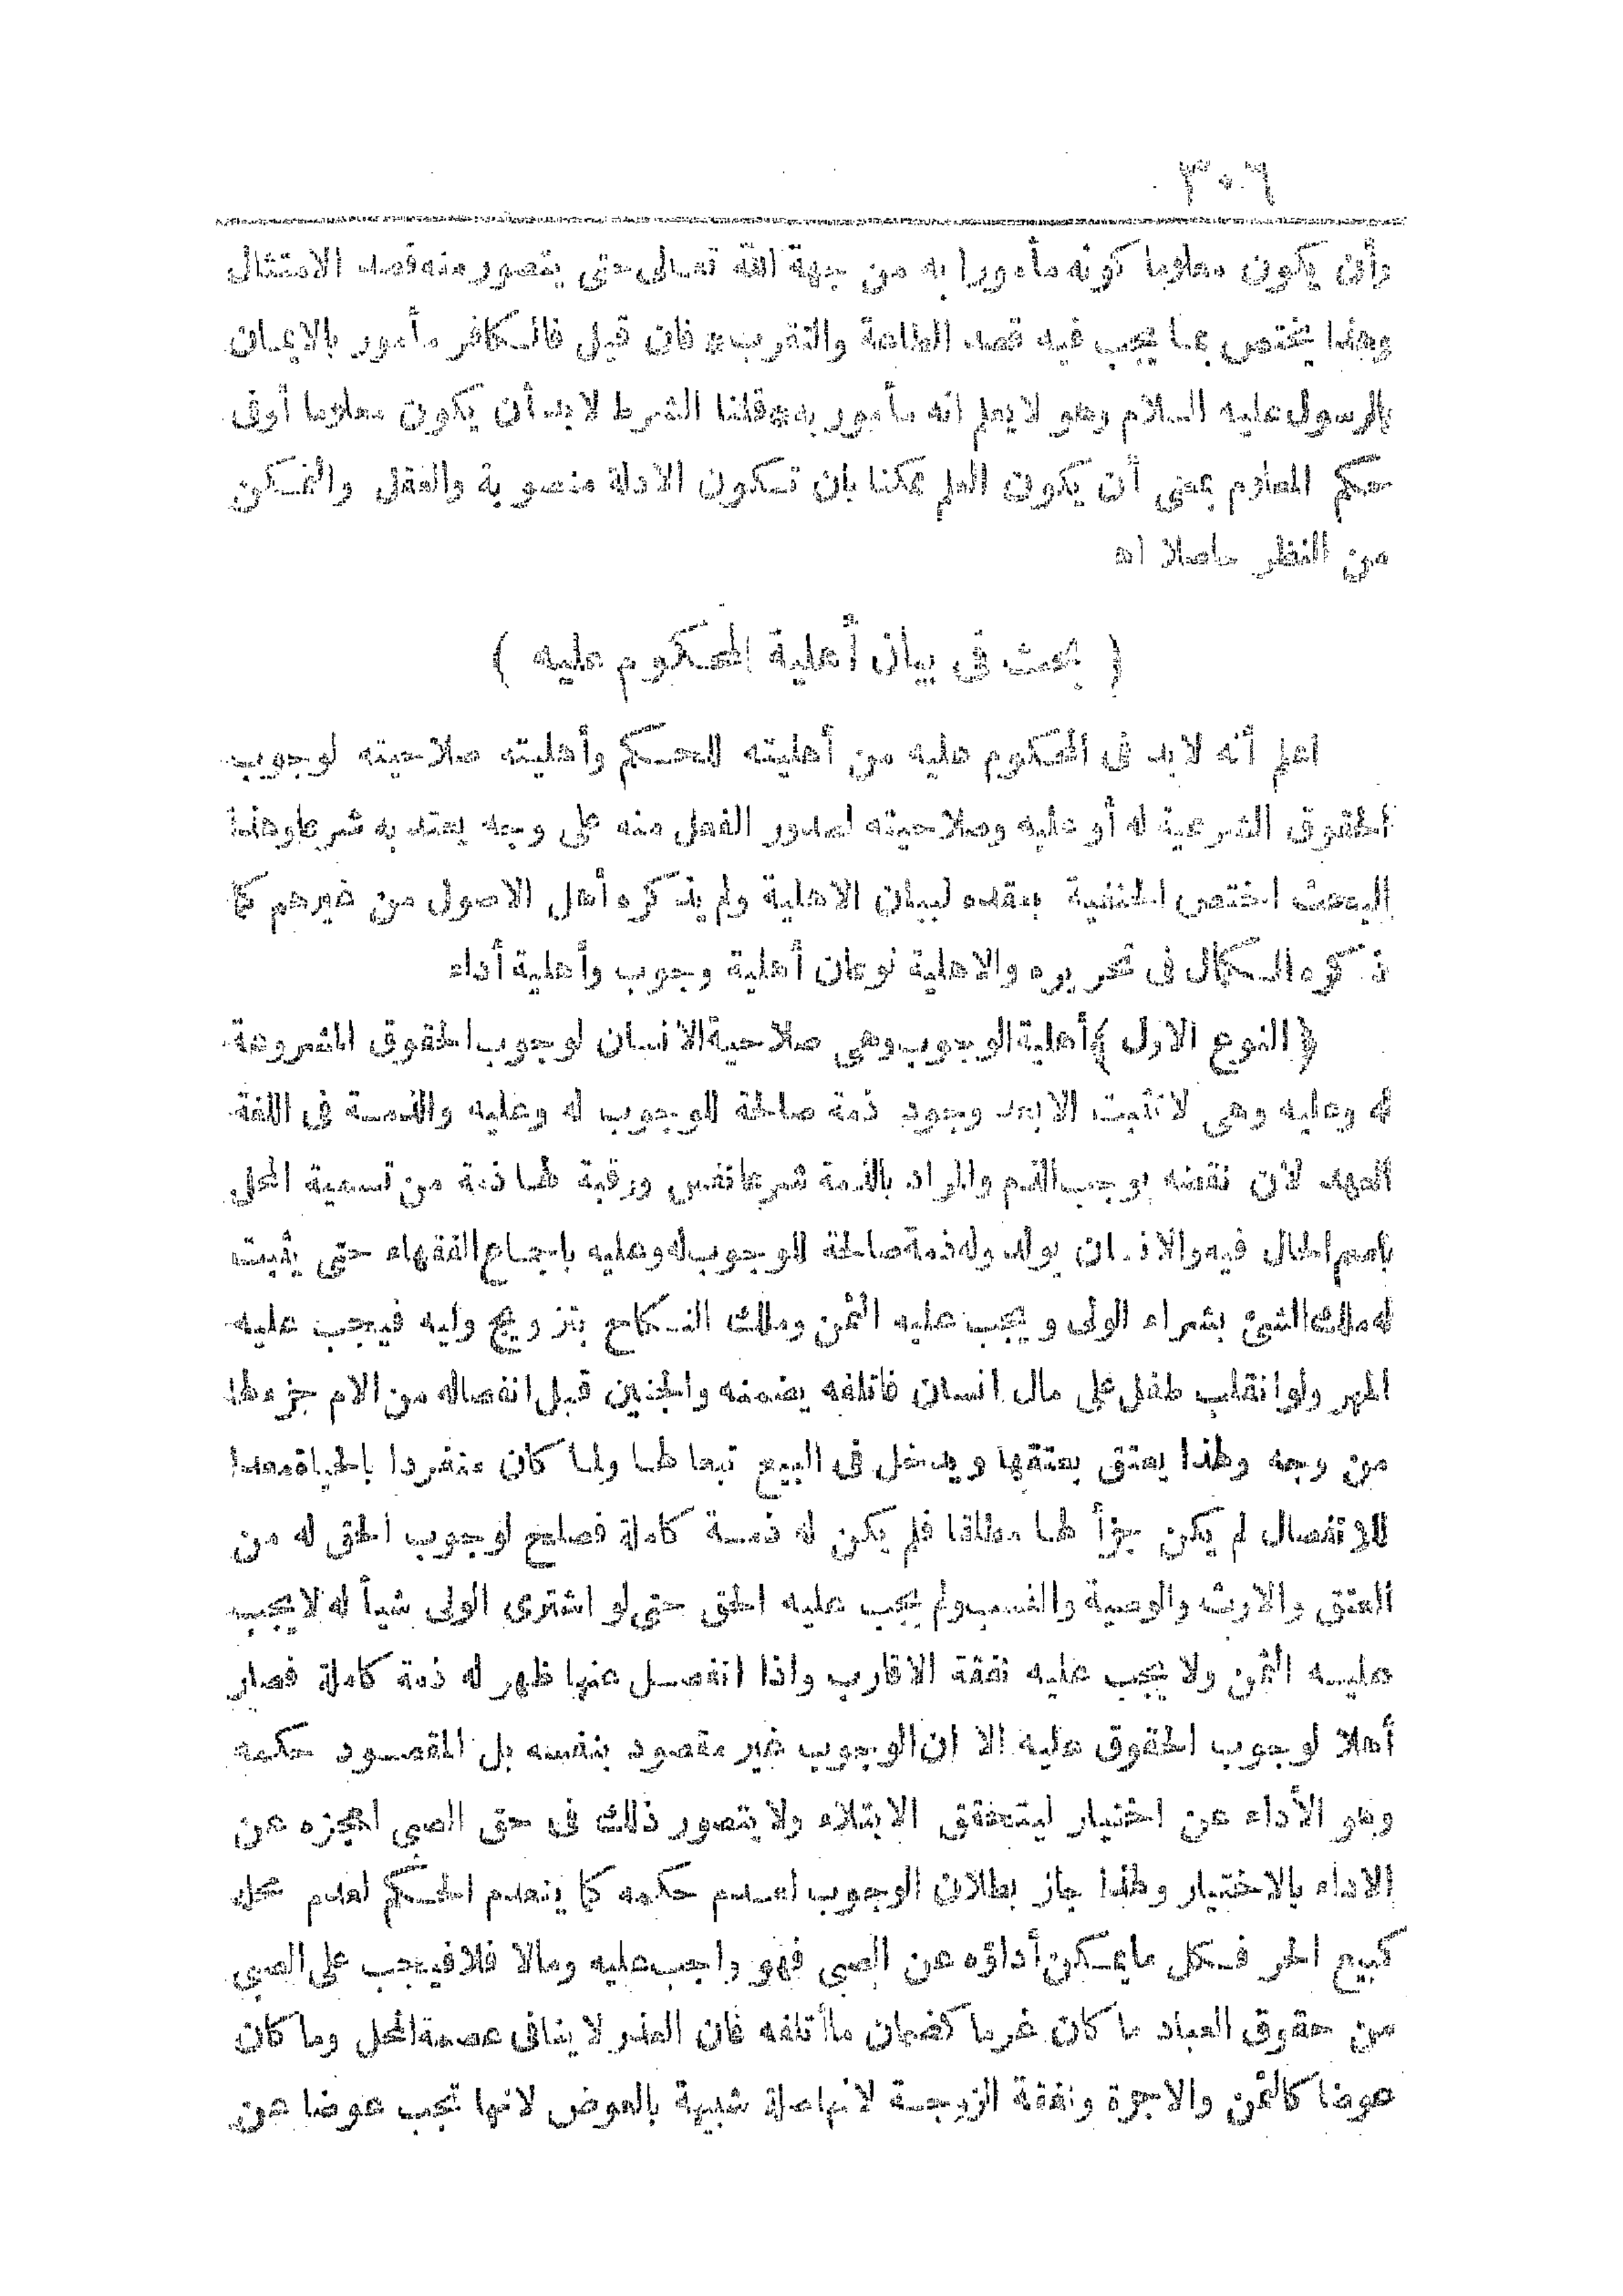 ٣٠٦
وأن يكون معلوما كونه مأمورا به من جهة الله تعالى حتى يتصور منه قصد الامتثال
وهذا يختص بما يجب فيه قصد الطاعة والتقرب * فان قيل فالكافر مأمور بالايمان
بالرسول عليه السلام وهو لا يعلم انه مأمور به * قلنا الشرط لا بد أن يكون معلوما أوفى
حكم المعلوم بمعنى أن يكون العلم ممكنا بان تكون الادلة منصوبة والعقل والتمكن
من النظر حاصلا اه
( بحث فى بيان أهلية المحكوم عليه )
اعلم أنه لا بد فى المحكوم عليه من أهليته للحكم وأهليته صلاحيته لوجوب
الحقوق الشرعية له أو عليه وصلاحيته لصدور الفعل منه على وجه يعتد به شرعا وهذا
البحث اختص الحنفية بعقده لبيان الاهلية ولم يذكره أهل الاصول من غيرهم كما
ذكره الكمال فى تحريره والاهلية نوعان أهلية وجوب وأهلية أداء
﴿ النوع الاول ﴾ أهلية الوجوب وهى صلاحية الانسان لوجوب الحقوق المشروعة
له وعليه وهى لا تثبت الا بعد وجود ذمة صالحة للوجوب له وعليه والذمة فى اللغة
العهد لان نقضه يوجب الذم والمراد بالذمة شرعا نفس ورقبة لها ذمة من تسمية المحل
باسم الحال فيه والانسان يولد وله ذمة صالحة للوجوب له وعليه باجماع الفقهاء حتى يثبت
له ملك الشئ بشراء الولى ويجب عليه الثمن وملك النكاح بتزويج وليه فيجب عليه
المهر ولو انقلب طفل على مال انسان فاتلفه يضمنه والجنين قبل انفصاله من الام جزء لها
من وجه ولهذا يعتق بعتقها ويدخل فى البيع تبعا لها ولما كان منفردا بالحياة معدا
للانفصال لم يكن جزأ لها مطلقا فلم يكن له ذمة كاملة فصلح لوجوب الحق له من
العتق والارث والوصية والنسب ولم يجب عليه الحق حتى لو اشترى الولى شيأ له لا يجب
عليه الثمن ولا يجب عليه نفقة الاقارب واذا انفصل عنها ظهر له ذمة كاملة فصار
أهلا لوجوب الحقوق عليه الا ان الوجوب غير مقصود بنفسه بل المقصود حكمه
وهو الأداء عن اختيار ليتحقق الابتلاء ولا يتصور ذلك فى حق الصبي لعجزه عن
الاداء بالاختيار ولهذا جاز بطلان الوجوب لعدم حكمه كما ينعدم الحكم لعدم محله
كبيع الحر فكل ما يمكن أداؤه عن الصبى فهو واجب عليه ومالا فلا فيجب على الصبي
من حقوق العباد ما كان غرما كضمان ما أتلفه فان العذر لا ينافى عصمة المحل وما كان
عوضا كالثمن والاجرة ونفقة الزوجة لانها صلة شبيهة بالعوض لانها تجب عوضا عن